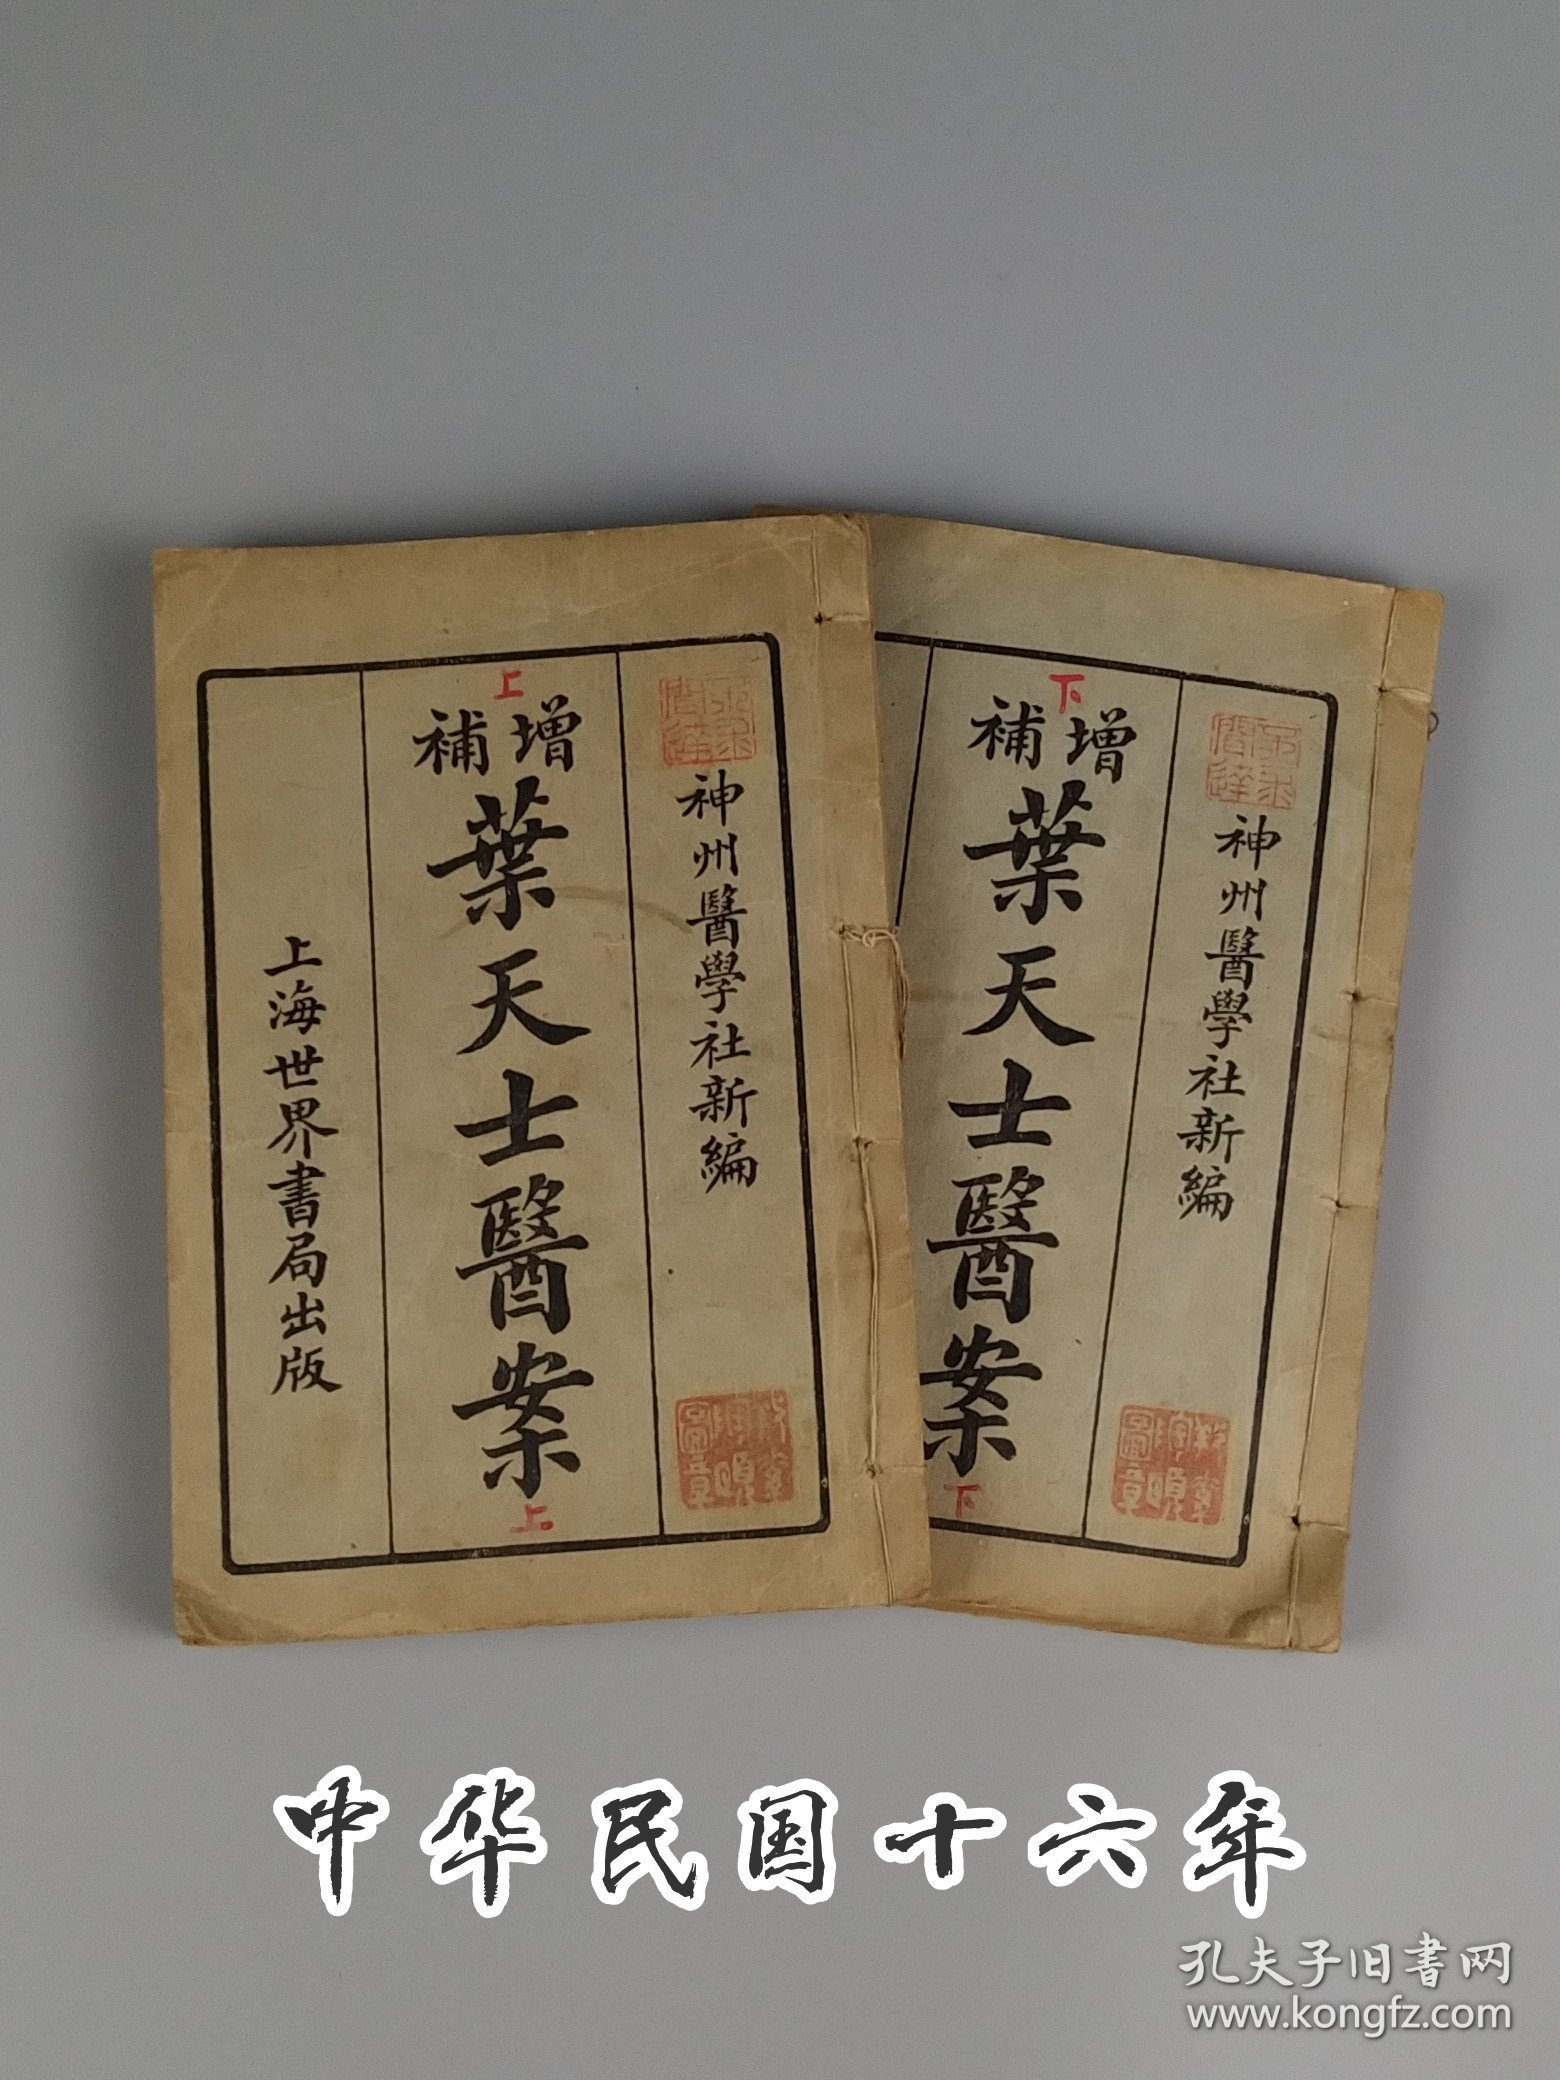 上
增補
葉天士醫案
上
神州醫學社新編
上海世界書局出版
下
增補
葉天士醫案
下
神州醫學社新編
中华民国十六年
孔夫子旧书网
www.kongfz.com